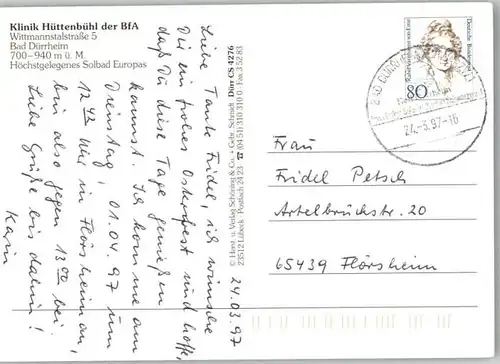 Klinik Hüttenbühl der BfA
Wittmannstalstraße 5
Bad Dürrheim
700-940 m ü. M.
Höchstgelegenes Solbad Europas
24.03.97
Liebe Tante Fridel, ich wünsche
Dir ein frohes Osterfest und hoffe,
daß Du diese Tage genießen
kannst. Ich komme am
Dienstag, 01.04.97 um
12 42 Uhr in Flörsheim an,
bin also gegen 13 00 bei
Liebe Grüße bis dahin!
Karin
© Horst u. Verlag Schöning & Co. + Gebr. Schmidt
23512 Lübeck · Postfach 24 23 ☎ (04 51) 310 310
Dürr CS 4276
Deutsche Bundespost
80
24.-3.97-16
Frau
Fridel Petsch
Artelbrückstr. 20
65439 Flörsheim